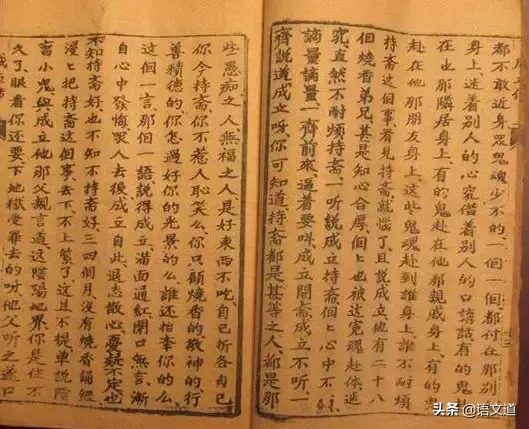 都不敢近身衆鬼魂少不的一個一個都付在那別
身上着别人的心竅借着别人的口説話有的鬼
在也那隣居身上有的鬼赴在他那親戚身上有的
赴在他那朋友身上這些鬼魂赴到誰身上誰不耐煩
持斋這個事看見持斋就惱了且説成立他有二十八
個燒香弟兄甚是知心合房個個也被這寃魂赴体迷
究直然不耐煩持斋一听説成立持斋個個上心中不
論量論量一齊前來逼着要成立開斋成立不听一
齊説道成立呀你可知道持斋都是甚等之人都是那
些愚痴之人無福之人是好東西不吃自己折各自己
你今持斋你不惹人恥笑么你只顧燒香的敬神的行
善積德的你怎過好你的光景的么誰还抬奉你的么
這個一言那個一語說得成立滿面通紅閉口無言漸
自心中發悔眾人去後成立自此退志心憂疑不定也
不知持斋好也不知不持斋好三四個月沒有燒香誦經
漫漫把持斋這個事丢下不上緊了這且不提单説陰
畜小鬼與成立他那父親言道這陰陽地界你是住不
久了眼看你还要下地獄受罪去的呀他父听之遂口
头条 @语文道